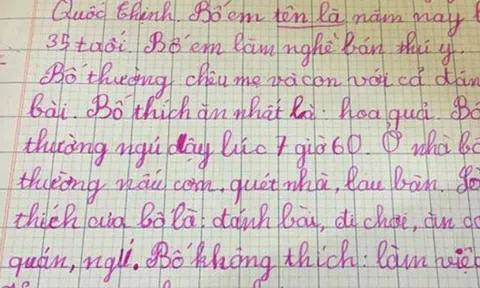 Quốc Thịnh. Bố em tên là năm nay
35 tuổi. Bố em làm nghề bán thú y.
Bố thường chêu mẹ và con với cả đán
bài. Bố thích ăn nhất là: hoa quả. Bố
thường ngủ dậy lúc 7 giờ 60. Ở nhà bố
thường nấu cơm, quét nhà, lau bàn. Sở
thích của bố là: đánh bài, đi chơi, ăn
quán, ngủ. Bố không thích: làm việc